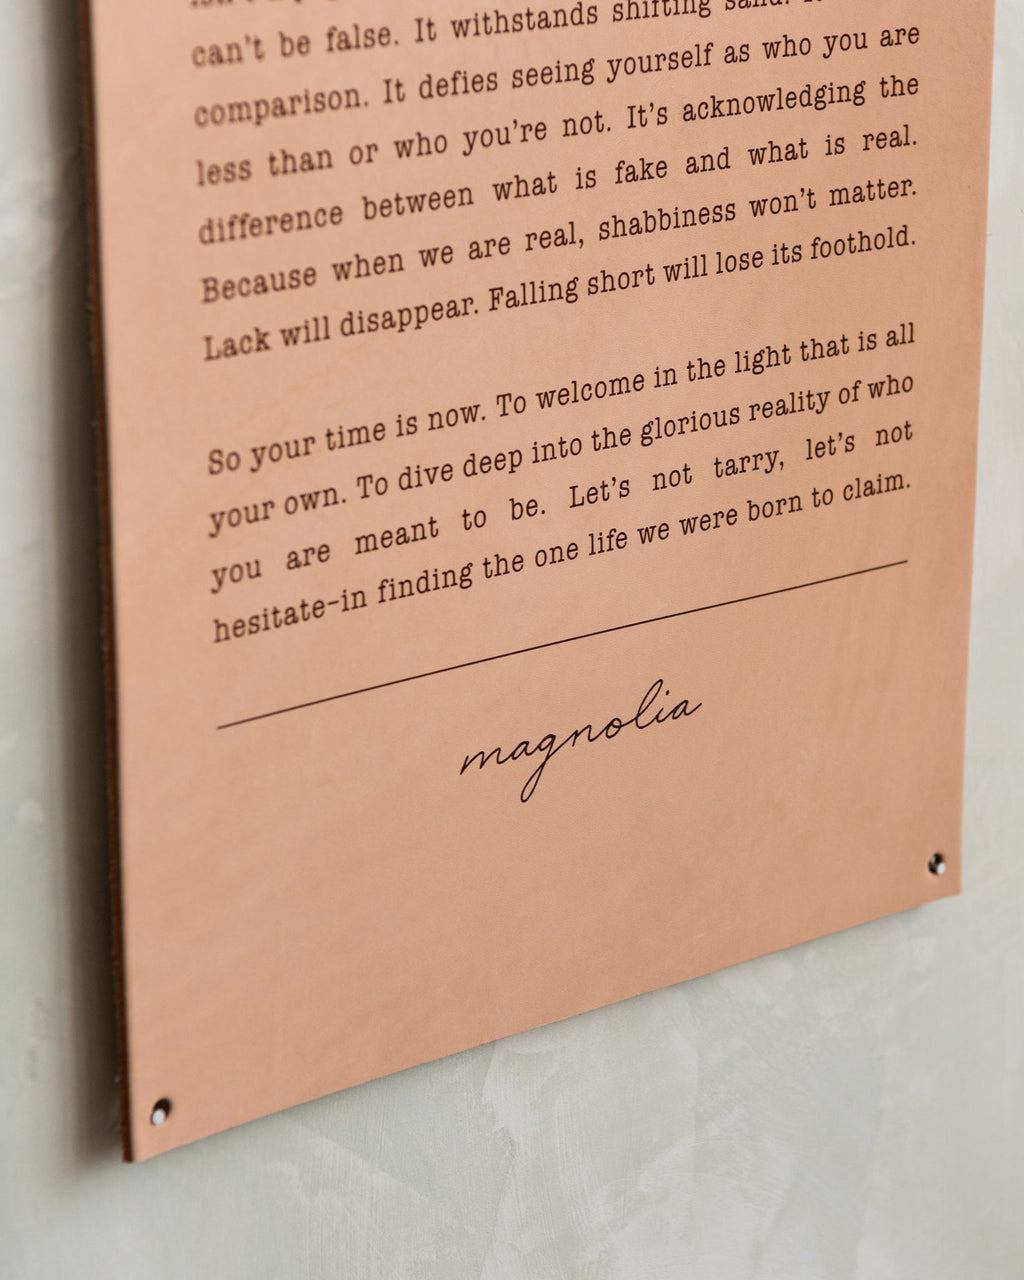 can't be false. It withstands shifting sand.
comparison. It defies seeing yourself as who you are
less than or who you're not. It's acknowledging the
difference between what is fake and what is real.
Because when we are real, shabbiness won't matter.
Lack will disappear. Falling short will lose its foothold.
So your time is now. To welcome in the light that is all
your own. To dive deep into the glorious reality of who
you are meant to be. Let's not tarry, let's not
hesitate-in finding the one life we were born to claim.
magnolia